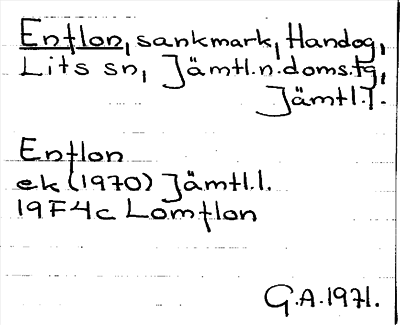 Entlon, sankmark, Handog,
Lits sn, Jämtl.n.doms.tg,
Jämtl.l.
Entlon
ek (1970) Jämtl.l.
19F4c Lomtlon
G.A.1971.